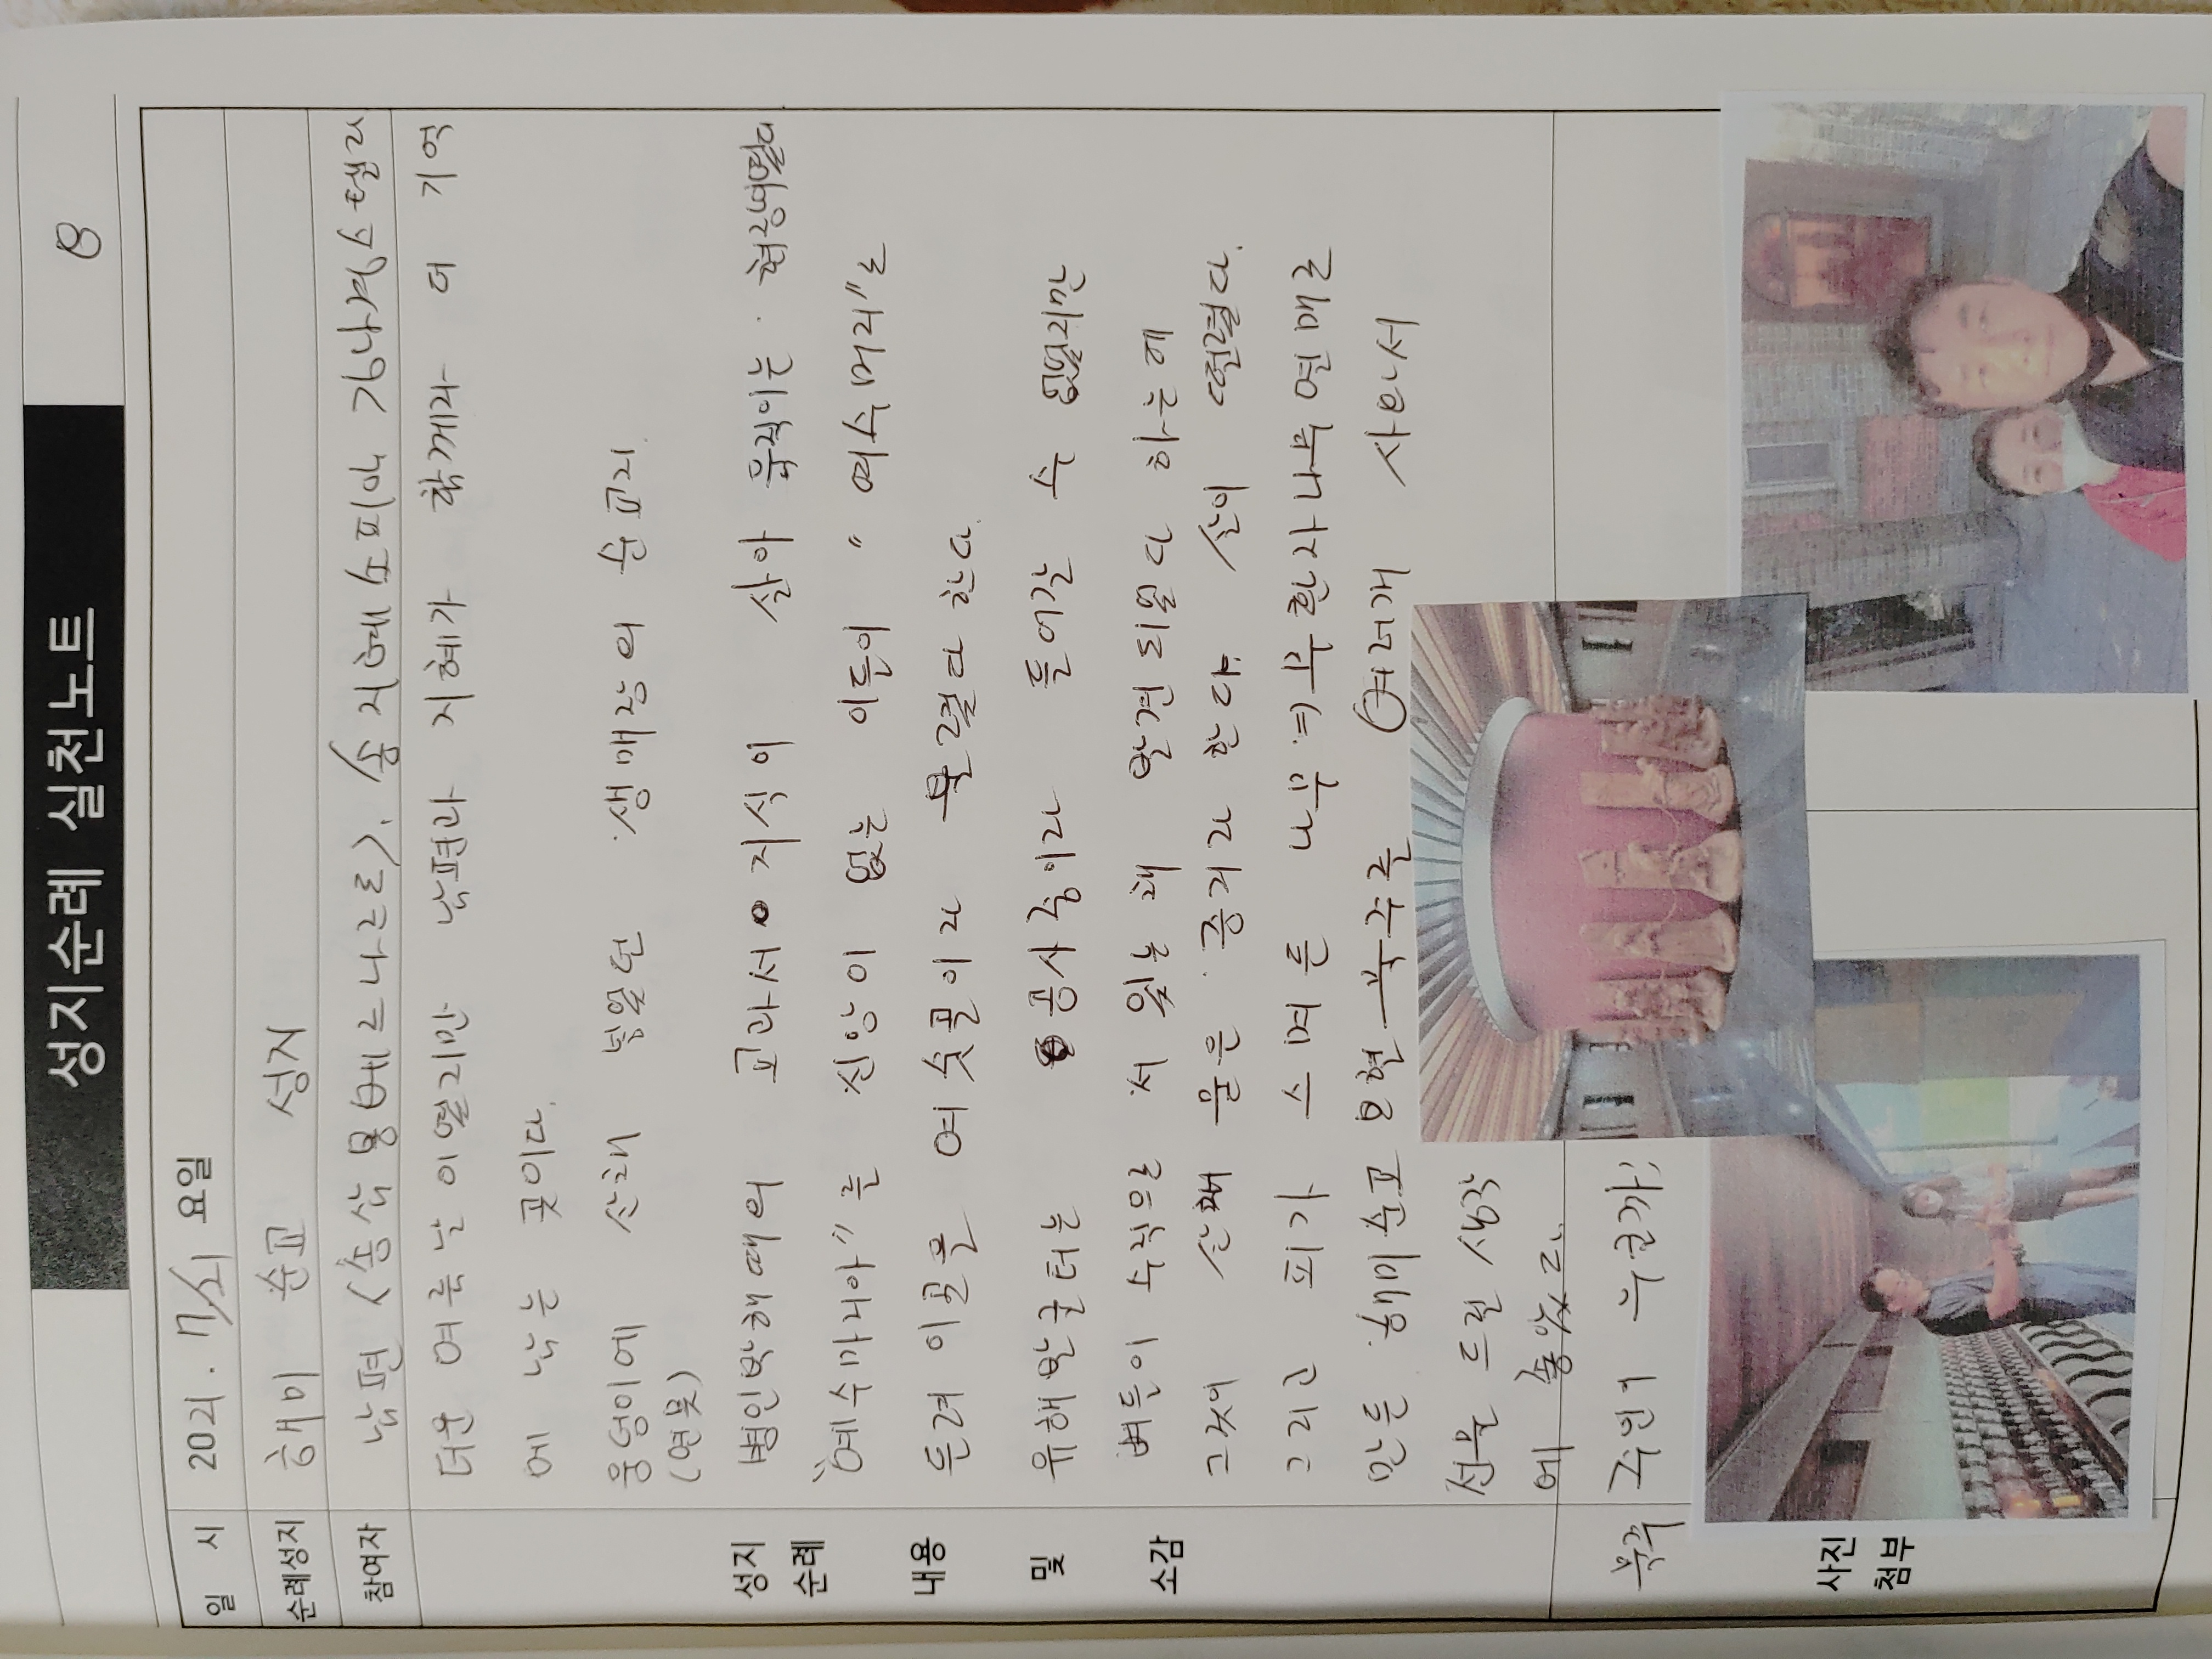 성지순례 실천노트
8
일 시 2021. 7/31 요일
순례성지 해미 순교 성지
참여자 남편 (송삼용베르나르르), 송지혜소피아, 강나경스텔라
더운 여름날이였지만 남편과 지혜가 함께라 더 기억
에 남는 곳이다.
웅덩이에 산채 넣었던 생매장의 순교지.
(연못)
병인박해때의 교과서 지식이 살아 움직이는 현장이였다.
"예수마리아"를 신앙이 없는 이들이 "여수머리"로
들려 이곳을 여숫골이라 불렀다 한다.
유해발굴터는 공사중이라 들어갈 수 없었지만
뼈들이 수직으로 서 있는 채 발견되었다 하는데
그것이 산채 묻은 증거라 한다. 삶이 열렸다.
그리고 피가 스며든 나무 => 회화나무 열매로
만든 해미순교 묵주를 여러개 사면서
선물 드릴 생각
에 좋았고.
묵주 주인이 누굴까;
성지
순례
내용
및
소감
사진
첨부